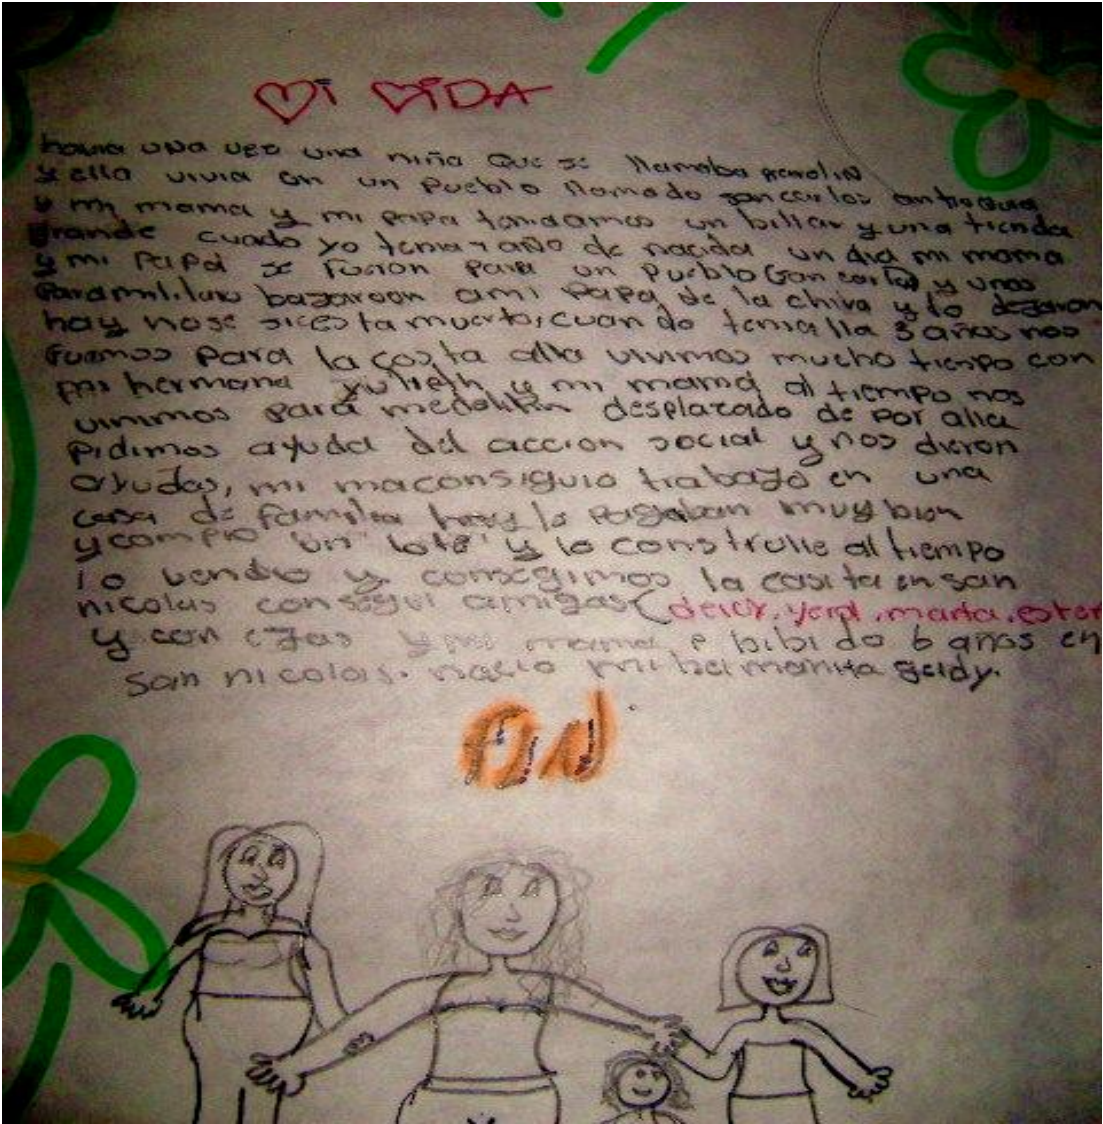 Mi ViDA
havia una vez una niña que se llamaba
y ella vivia en un Pueblo llamado san carlos antioquia
y mi mama y mi papa teniamos un billar y una tienda
grande cuado yo tenia 7 año de nacida un dia mi mama
y mi papa se fueron para un pueblo (san carlos) y unos
paramilitares bajaroon ami papa de la chiva y lo dejaron
hay nose sices ta muerto, cuan do tenia lla 3 años nos
fuimos para la costa alla vivimos mucho tiempo con
mi hermana yulieth y mi mama al tiempo nos
vinimos para medellin desplazado de por alla
pidimos ayuda del accion social y nos dieron
ayudas, mi maconsiguio trabajo en una
casa de familia hay le pagaban muy bien
y compro un lote y lo construlle al tiempo
lo vendio y consegimos la casita en san
nicolas consegui amigas (deicy, yeral, marta, ester
y con ellas y mi mama e bibido 6 años en
san nicolas. nacio mi hermanita geidy.